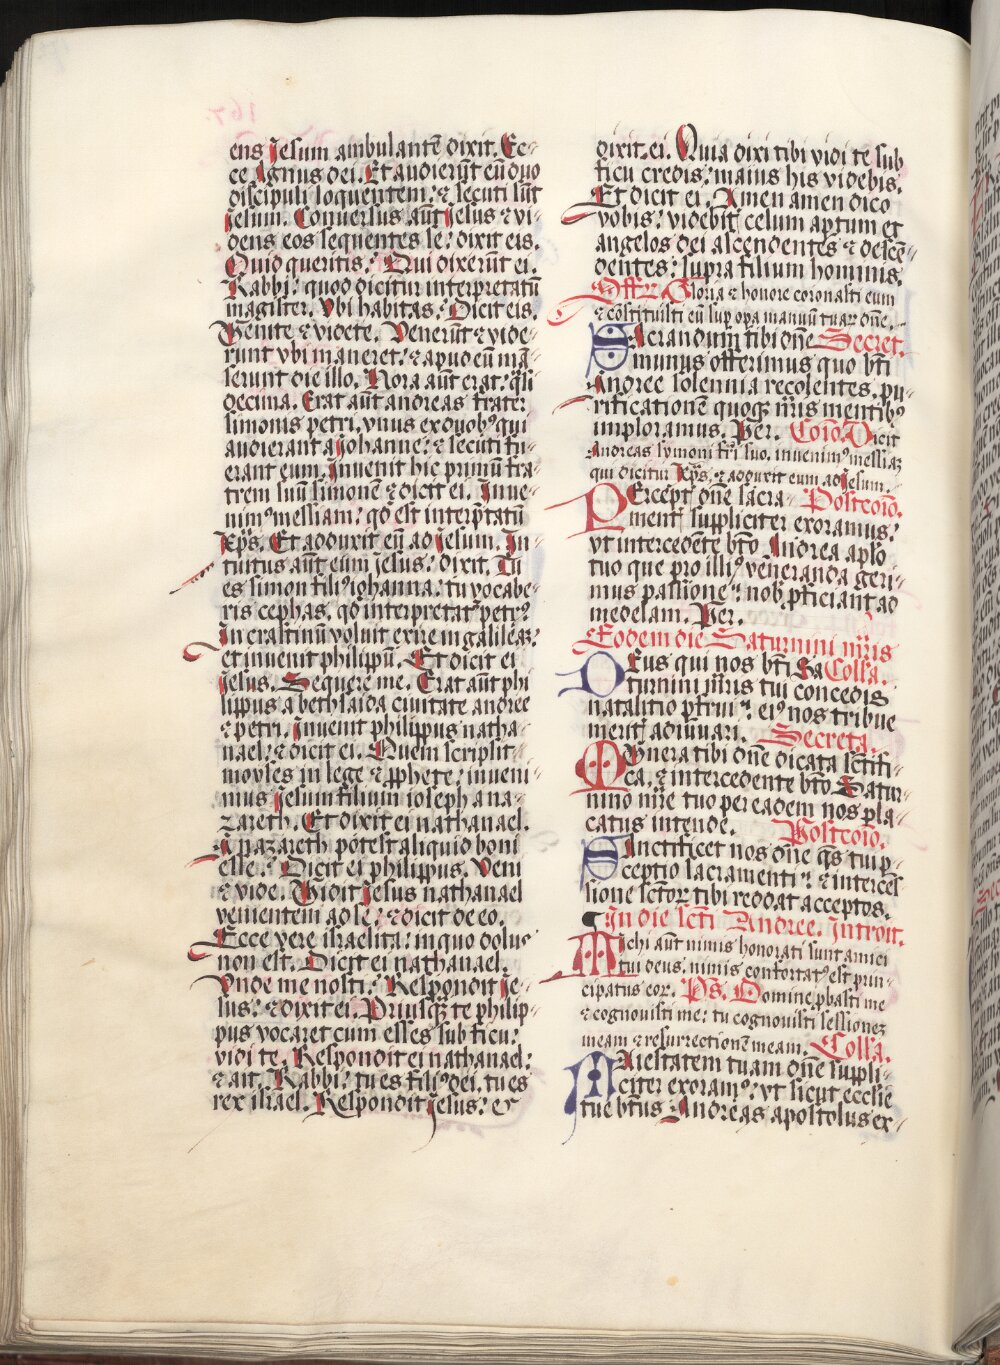 ens Jesum ambulantē dixit. Ec-
ce Agnus dei. Et audierūt eū duo
discipuli loquentem: ⁊ secuti sūt
Jesum. Conversus aūt Jesus ⁊ vi-
dens eos sequentes se: dixit eis.
Quid queritis? Qui dixerūt ei.
Rabbi: quod dicitur interpretatū
magister. Vbi habitas? Dicit eis.
Venite ⁊ videte. Venerūt ⁊ vide-
runt vbi maneret: ⁊ apud eū mā-
serunt die illo. Hora aūt erat: q̄si
decima. Erat aūt andreas frater
simonis petri, vnus ex duobꝰ qui
audierant a Johanne: ⁊ secuti fu-
erant eum. Invenit hic primū fra-
trem suū simonē ⁊ dicit ei. Inve-
nimꝰ messiam: qd̄ est interp̄tatū
Xp̄s. Et adduxit eū ad Jesum. In-
tuitus aūt eum jesus: dixit. Tu
es simon filiꝰ iohanna: tu vocabe-
ris cephas, qd̄ interpretat̄ petrꝰ.
In crastinū voluit exire in galileā:
et invenit philippū. Et dicit ei
Jesus. Sequere me. Erat aūt phi
lippus a bethsaida civitate andree
⁊ petri. Invenit philippus natha-
nael: ⁊ dicit ei. Quem scripsit
moyses in lege ⁊ ꝓphete: inveni-
mus Jesum filium ioseph a na-
zareth. Et dixit ei nathanael.
A nazareth potest aliquid boni
esse? Dicit ei philippus. Veni
⁊ vide. Vidit Jesus nathanael
venientem ad se: ⁊ dicit de eo.
Ecce vere israelita: in quo dolus
non est. Dicit ei nathanael.
Vnde me nosti? Respondit Je-
sus: ⁊ dixit ei. Priusq̄ te philip-
pus vocaret cum esses sub ficu:
vidi te. Respondit ei nathanael:
⁊ ait. Rabbi: tu es filiꝰ dei, tu es
rex israel. Respondit Jesus: ⁊
dixit. ei. Quia dixi tibi vidi te sub
ficu credis: maius his videbis.
Et dicit ei. Amen amen dico
vobis: videbit̄ celum aptum et
angelos dei ascendentes ⁊ descē-
dentes: supra filium hominis.
Offr̄. Gloria ⁊ honore coronasti eum
⁊ cōstituisti eū sup̄ opa manuū tuaꝝ dn̄e.
Sacrandum tibi dn̄e Secret.
munus offerimus quo bt̄i
Andree solennia recolentes, pu-
rificationē quoqꝫ nr̄is mentibꝰ
imploramus. Per. Cōio. Dicit
Andreas symoni fr̄i suo, invenimꝰ messiaꝫ
qui dicitur Xp̄s. ⁊ adduxit eum ad Jesum.
Percepta dn̄e sacra- Postcoīo.
ment̄ suppliciter exoramus:
vt intercedēte bt̄o Andrea ap̄lo
tuo que pro illiꝰ veneranda geri-
mus passione: nob̄ p̄ficiant ad
medelam. Per.
Eodem die Saturnini mr̄is
Deus qui nos bt̄i Sa Coll̄a.
turnini mr̄is tui concedis
natalitio p̄frui: eiꝰ nos tribue
merit̄ adiuvari. Secreta.
Munera tibi dn̄e dicata sct̄ifi-
ca, ⁊ intercedente bt̄o Satur-
nino mr̄e tuo per eadem nos pla-
catus intende. Postcoīo.
Sanctificet nos dn̄e qs̄ tui p-
ceptio sacramenti: ⁊ interces-
sione sct̄oꝝ tibi reddat acceptos.
In die sct̄i Andree. Introit.
Michi aūt nimis honorati sunt amici
tui deus, nimis confortatꝰ est prin-
cipatus eoꝝ. Ps̄. Domine ꝓbasti me
⁊ cognovisti me: tu cognovisti sessioneꝫ
meam ⁊ resurrectionē meam. Coll̄a.
Maiestatem tuam dn̄e suppli-
citer exoramꝰ: vt sicut ecclīe
tue bt̄us Andreas apostolus ex-